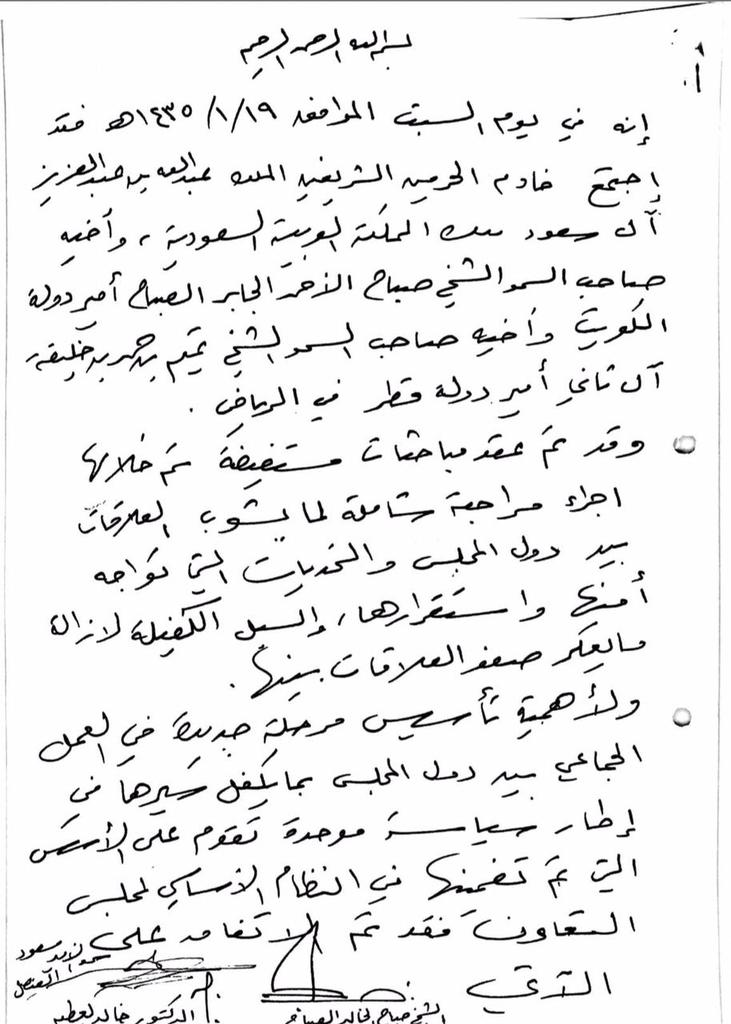 بسم الله الرحمن الرحيم
إنه في يوم السبت الموافق ١٤٣٥/١/١٩هـ فقد
إجتمع خادم الحرمين الشريفين الملك عبدالله بن عبدالعزيز
آل سعود ملك المملكة العربية السعودية ، وأخيه
صاحب السمو الشيخ صباح الأحمد الجابر الصباح أمير دولة
الكويت وأخيه صاحب السمو الشيخ تميم بن حمد بن خليفة
آل ثاني أمير دولة قطر في الرياض .
وقد تم عقد مباحثات مستفيضة تم خلالها
اجراء مراجعة شاملة لما يشوب العلاقات
بين دول المجلس والتحديات التي تواجه
أمنها واستقرارها، والسبل الكفيلة لازالة
مايعكر صفو العلاقات بينها .
ولأهمية تأسيس مرحلة جديدة في العمل
الجماعي بين دول المجلس بما يكفل سيرها في
إطار سياسة موحدة تقوم على الأسس
التي تم تضمينها في النظام الأساسي لمجلس
التعاون فقد تم الاتفاق على
الآتي
سعود الفيصل
الشيخ صباح الخالد الصباح
الدكتور خالد العطيه